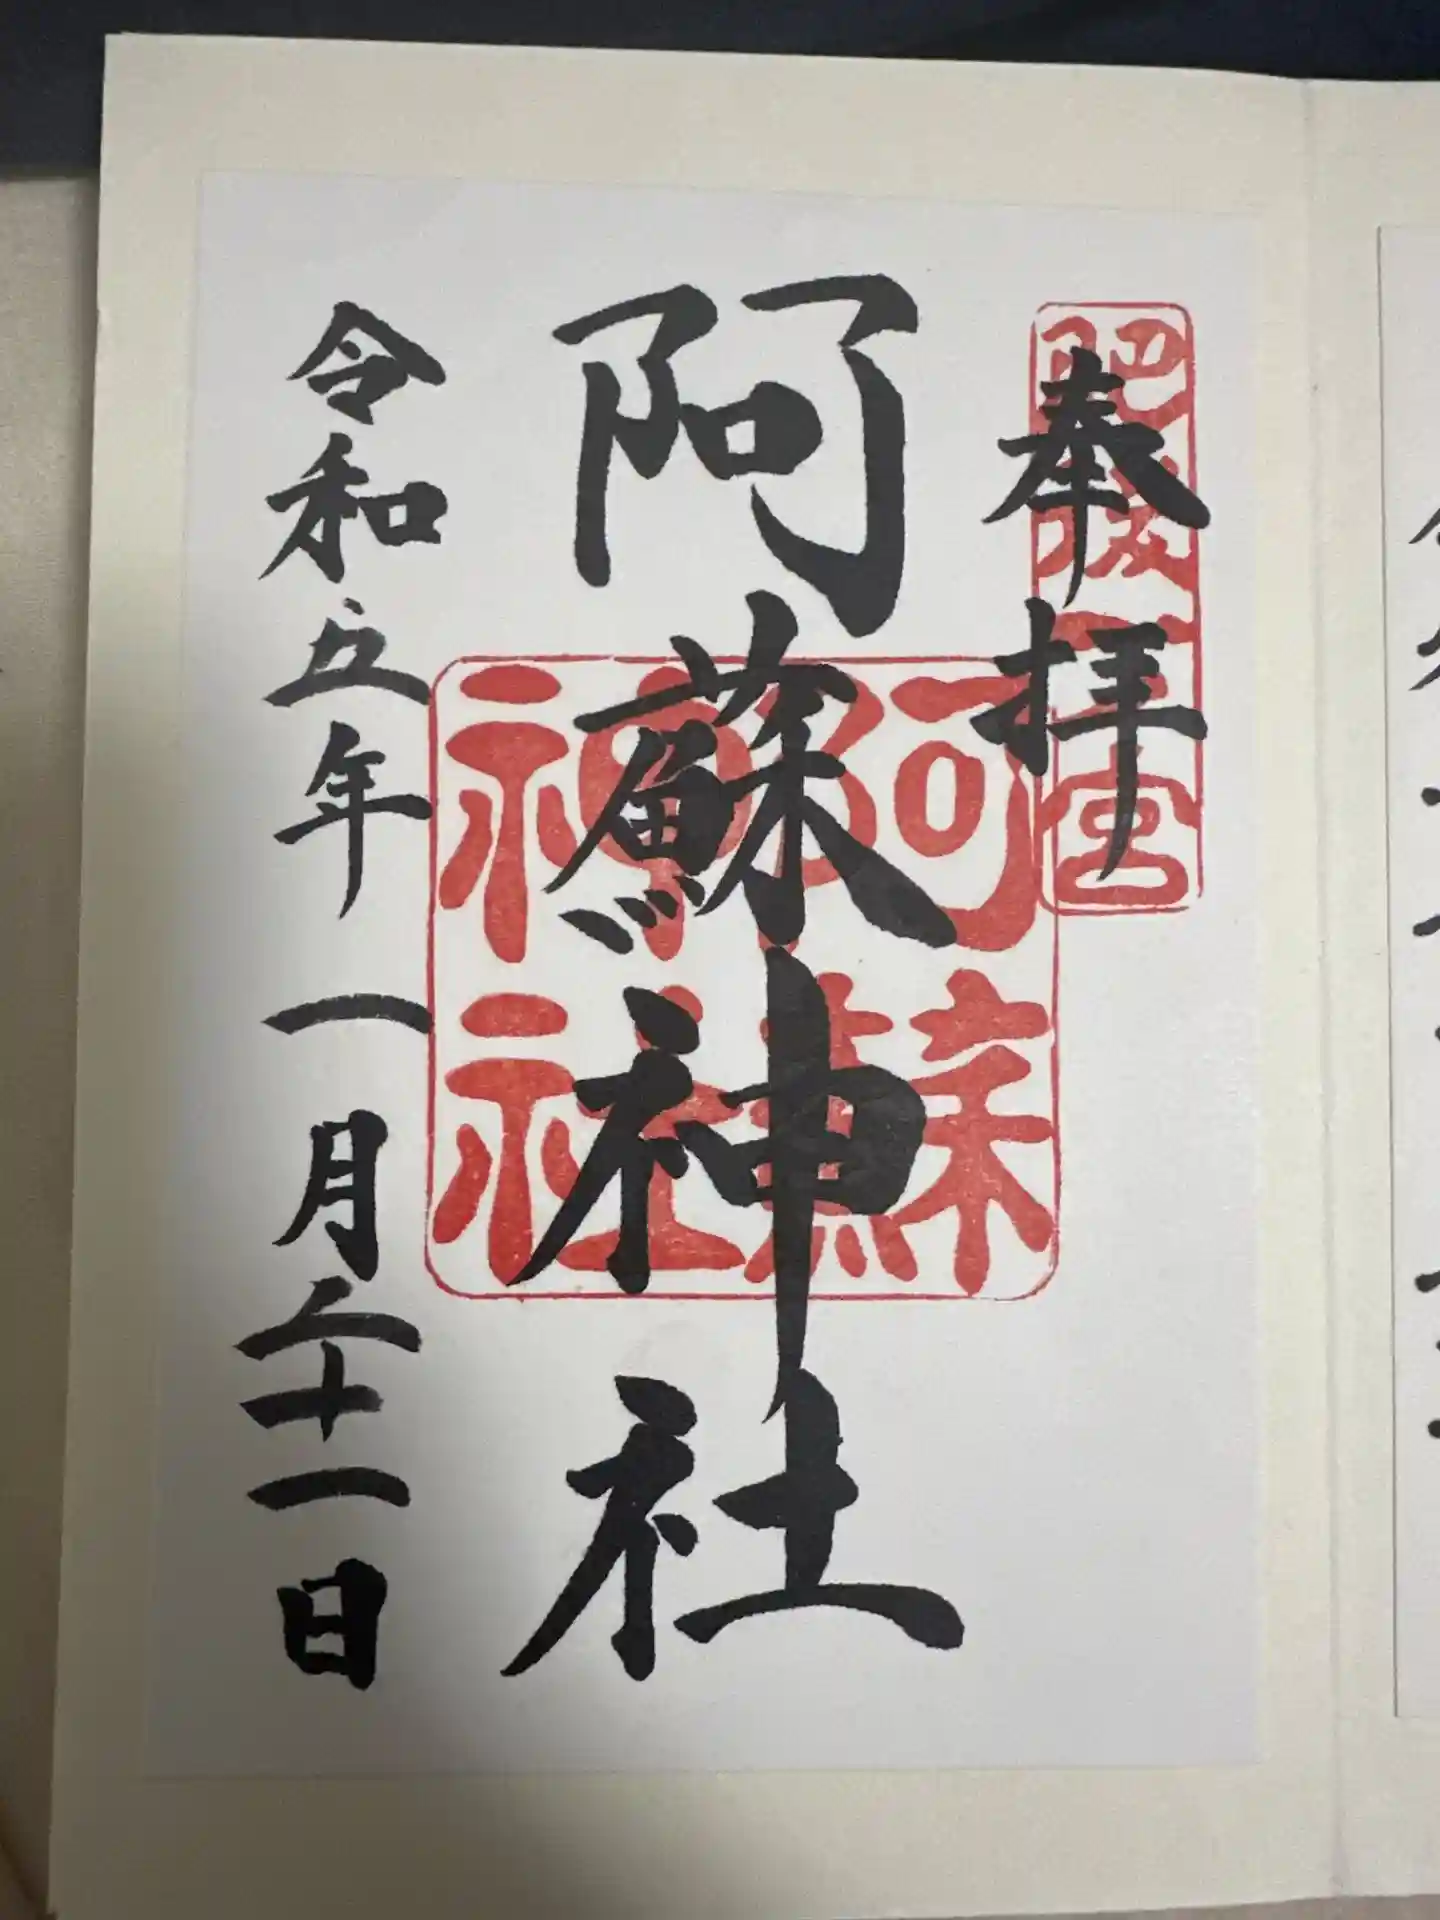 奉拝
肥後一宮
阿蘇神社
阿蘇神社
令和五年一月二十一日